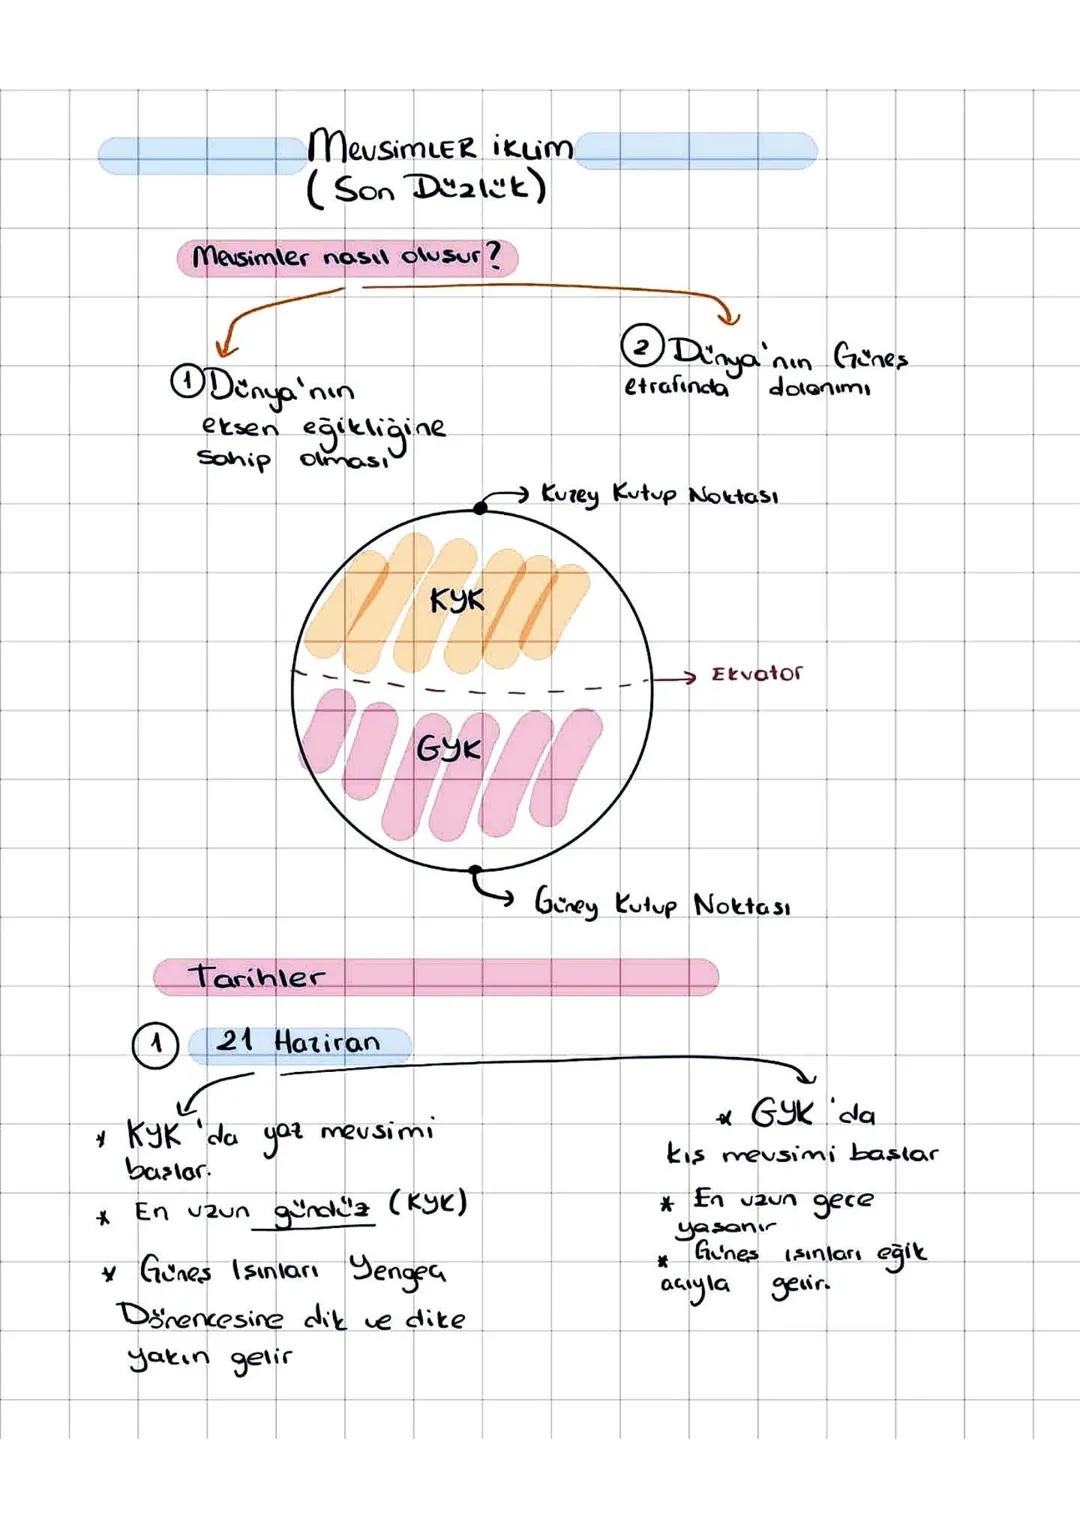 MevsimLER iKLim
(Son Düzlük)
Mevsimler nasıl olusur?
1 Dünya'nın
eksen eğikliğine
sahip olması
2 Dünya'nın Güneş
etrafında dolanımı
Kuzey Kutup Noktası
KYK
Ekvator
GYK
Güney Kutup Noktası
Tarihler
1 21 Haziran
* KYK'da yaz mevsimi
başlar.
* En uzun gündüz (KYK)
* Güneş Işınları Yengeç
Dönencesine dik ve dike
yakın gelir
* GYK'da
kış mevsimi başlar
* En uzun gece
yaşanır
* Güneş ışınları eğik
açıyla gelir.